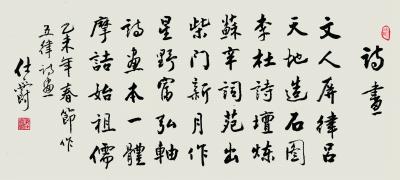 詩畫
文人屏律呂
天地造石圖
李杜詩壇煉
蘇辛詞苑出
柴門新月作
星野甯弘軸
詩畫本一體
摩詰始祖儒
乙未年春節作
五律詩畫